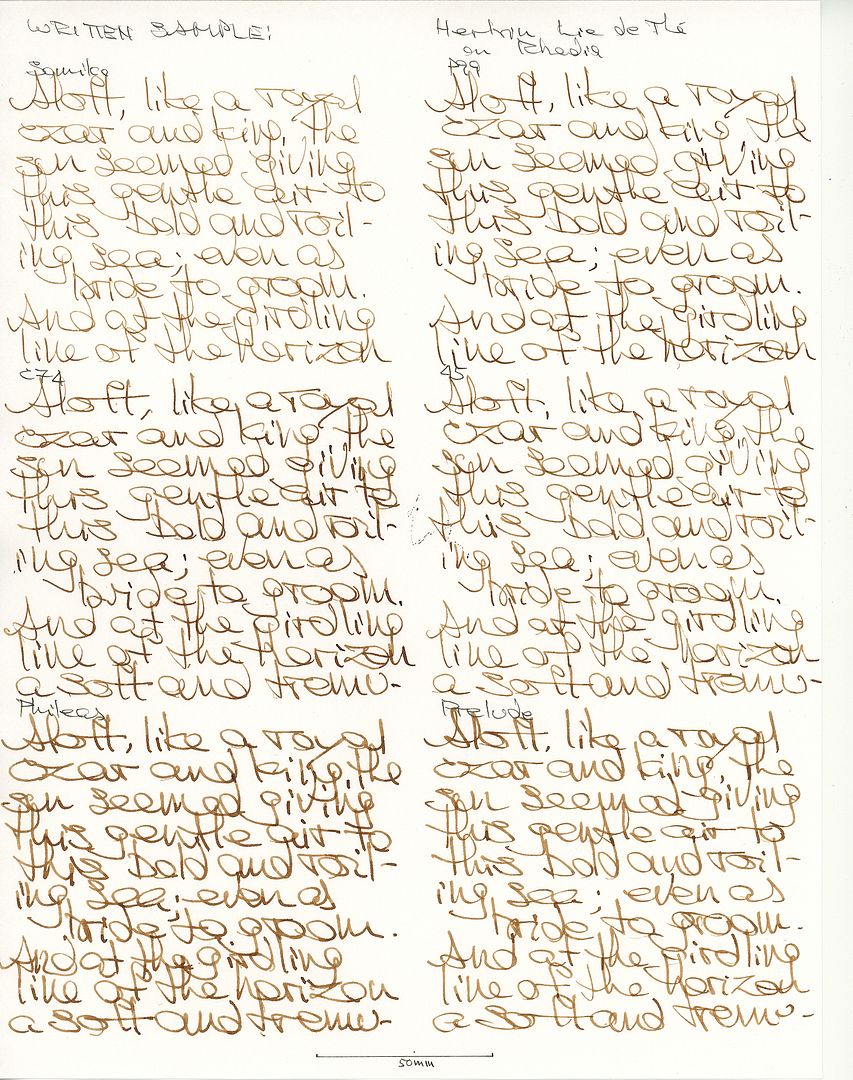 WRITTEN SAMPLE:
Herbin Lie de Thé
on Rhodia
Semika
Aloft, like a royal
czar and king, the
sun seemed giving
this gentle air to
this bold and roll-
ing sea; even as
bride to groom.
And at the girdling
line of the horizon
P99
Aloft, like a royal
czar and king the
sun seemed giving
this gentle air to
this bold and roll-
ing sea; even as
bride to groom.
And at the girdling
line of the horizon
C74
Aloft, like a royal
czar and king the
sun seemed giving
this gentle air to
this bold and roll-
ing sea; even as
bride to groom.
And at the girdling
line of the horizon
a soft and tremu-
45
Aloft, like a royal
czar and king, the
sun seemed giving
this gentle air to
this bold and roll-
ing sea; even as
bride to groom.
And at the girdling
line of the horizon
a soft and tremu-
Phileas
Aloft, like a royal
czar and king, the
sun seemed giving
this gentle air to
this bold and roll-
ing sea; even as
bride to groom.
And at the girdling
line of the horizon
a soft and tremu-
Prelude
Aloft, like a royal
czar and king, the
sun seemed giving
this gentle air to
this bold and roll-
ing sea; even as
bride to groom.
And at the girdling
line of the horizon
a soft and tremu-
50mm